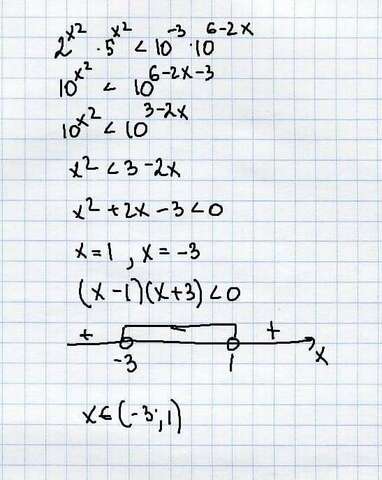 2^{x^2} · 5^{x^2} < 10^{-3} · 10^{6-2x}
10^{x^2} < 10^{6-2x-3}
10^{x^2} < 10^{3-2x}
x^2 < 3-2x
x^2 + 2x - 3 < 0
x = 1 , x = -3
(x-1)(x+3) < 0
+ - +
-3 1 x
x ∈ (-3; 1)